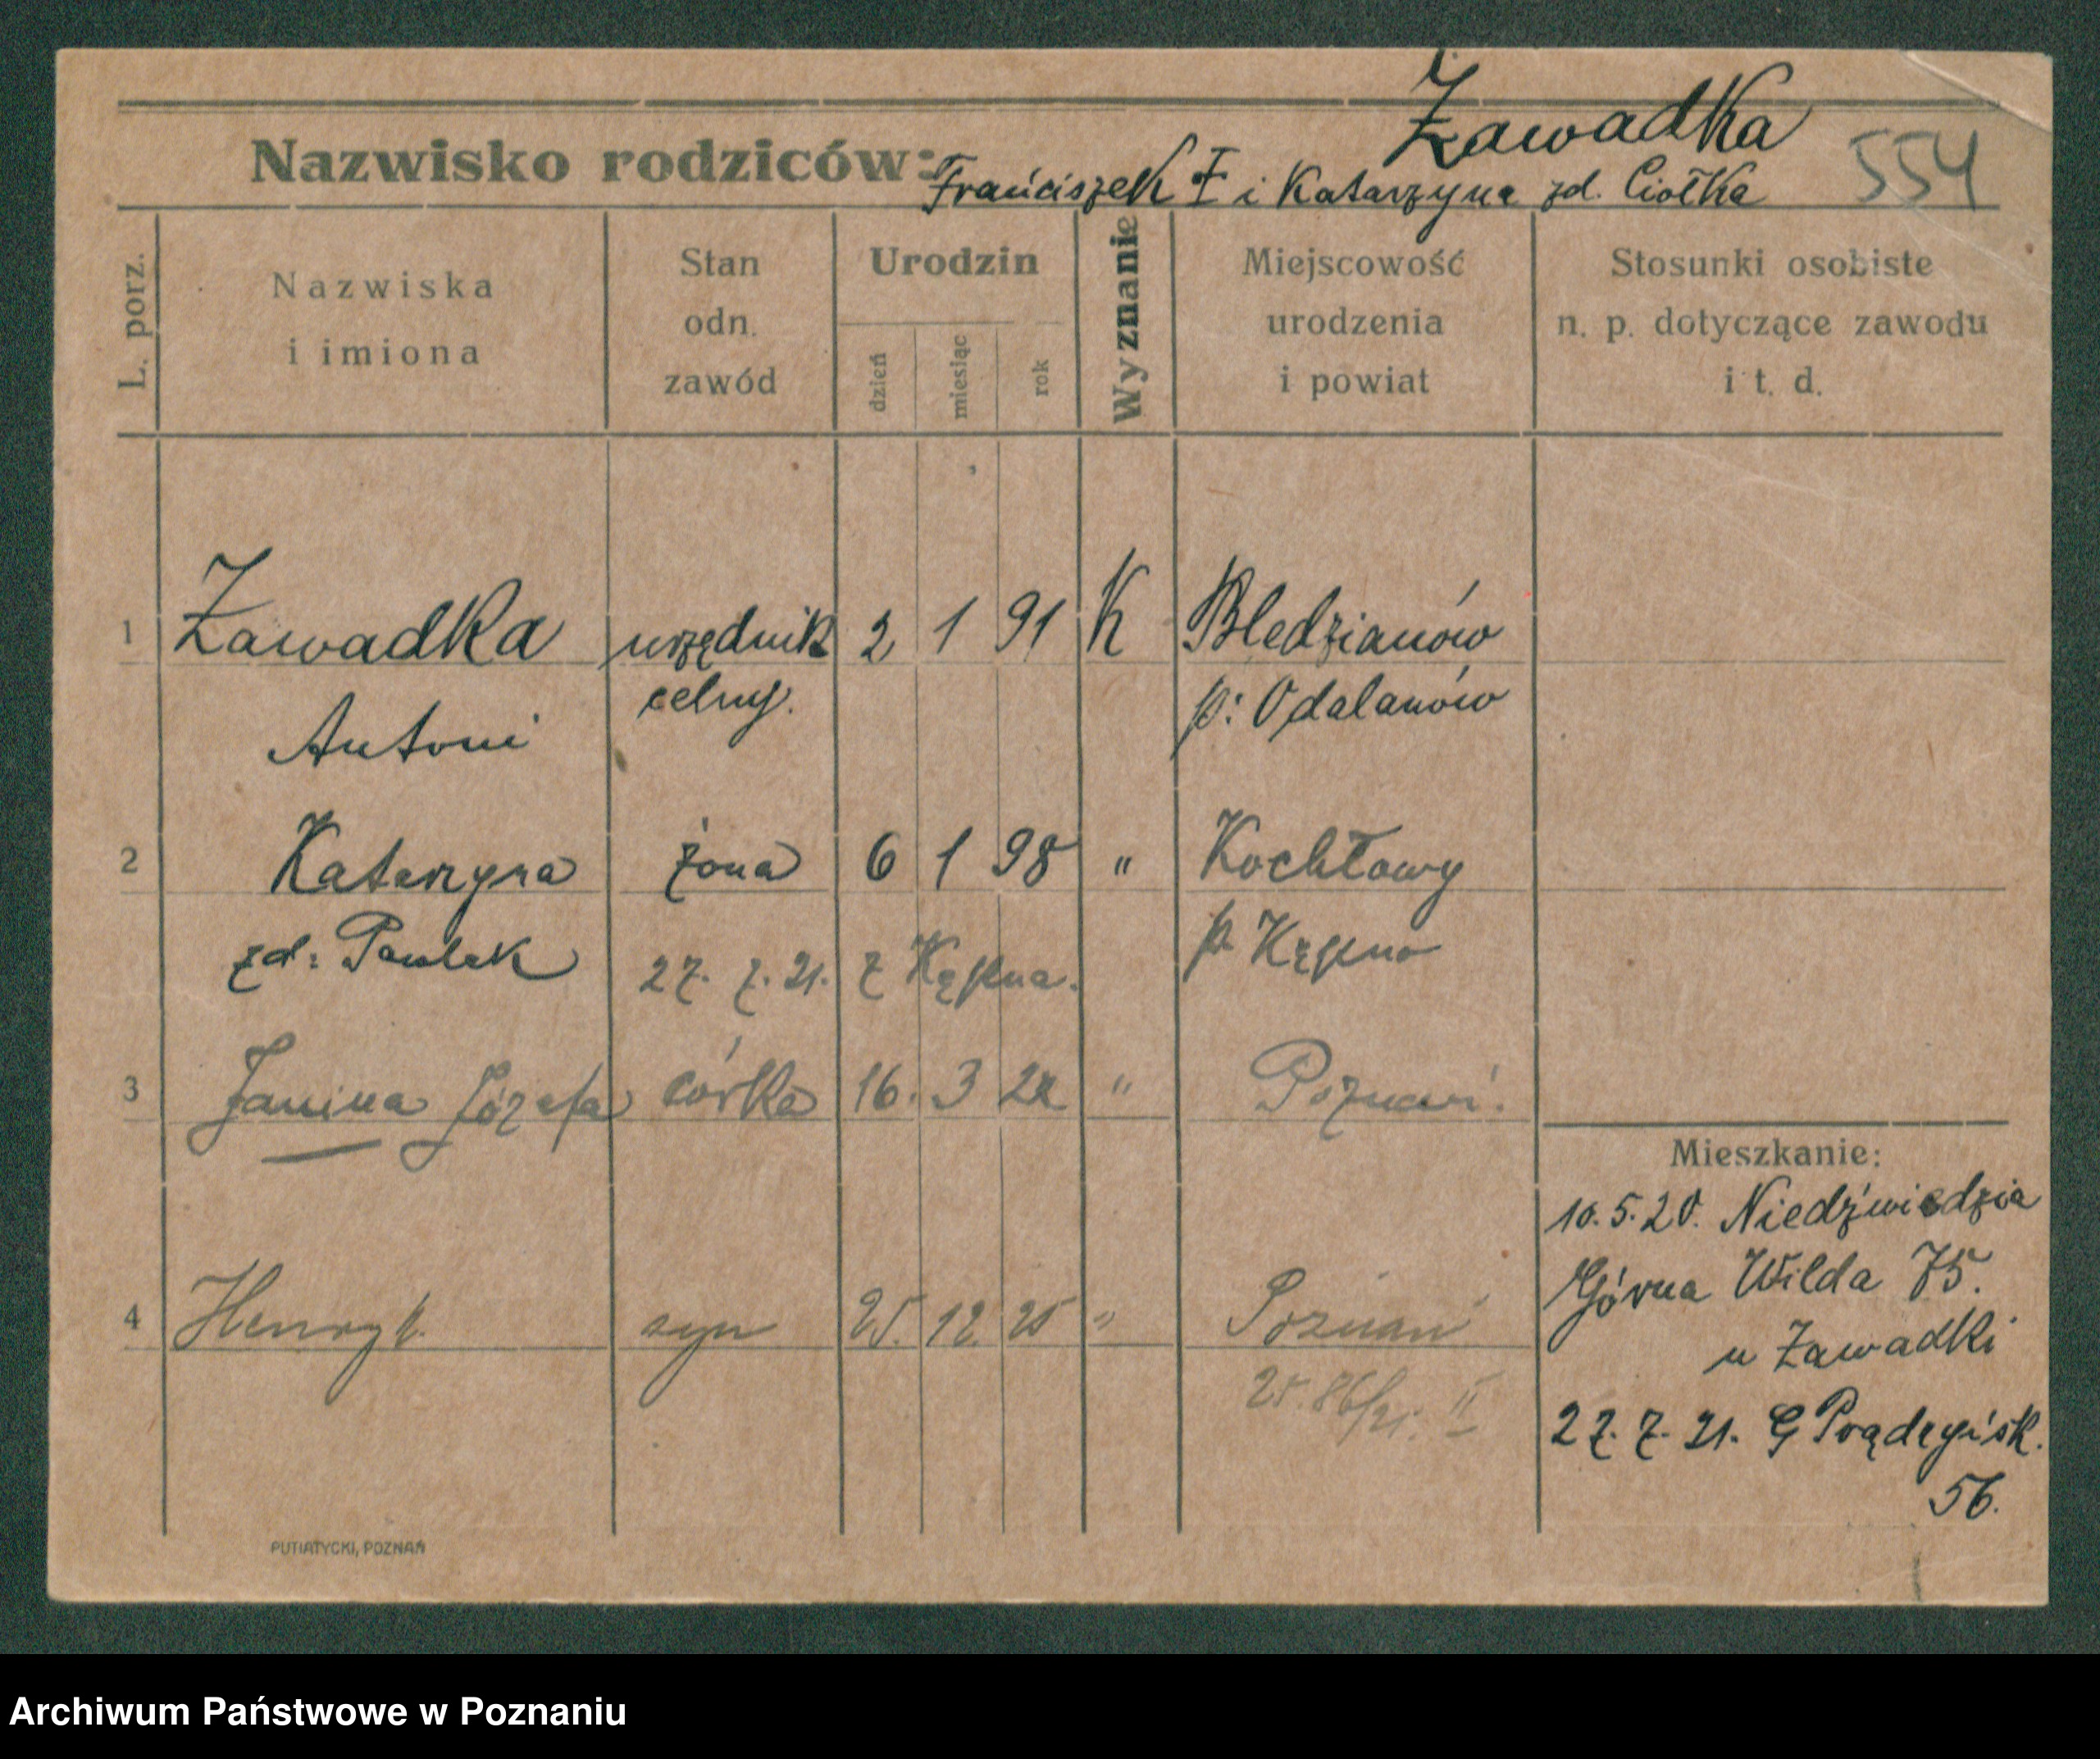 Zawadka
554
Nazwisko rodziców: Franciszek † i Katarzyna zd. Ciołka
L. porz.
Nazwiska i imiona
Stan odn. zawód
Urodzin
dzień
miesiąc
rok
Wyznanie
Miejscowość urodzenia i powiat
Stosunki osobiste n. p. dotyczące zawodu i t. d.
1 Zawadka urzędnik 2 1 91 K Bledzianów
Antoni celny. p: Odalanów
2 Katarzyna żona 6 1 98 " Kochłowy
zd: Pawlak 27. 7. 21. z Kępna. p. Kępno
3 Janina Józefa córka 16. 3 22 " Poznań.
4 Henryk. syn 25. 12. 25 " Poznań
II
Mieszkanie:
10.5.20. Niedźwiedzia
Górna Wilda 75.
u Zawadki
27. 7. 21. G Prądzyńsk.
56.
PUTIATYCKI, POZNAŃ
Archiwum Państwowe w Poznaniu